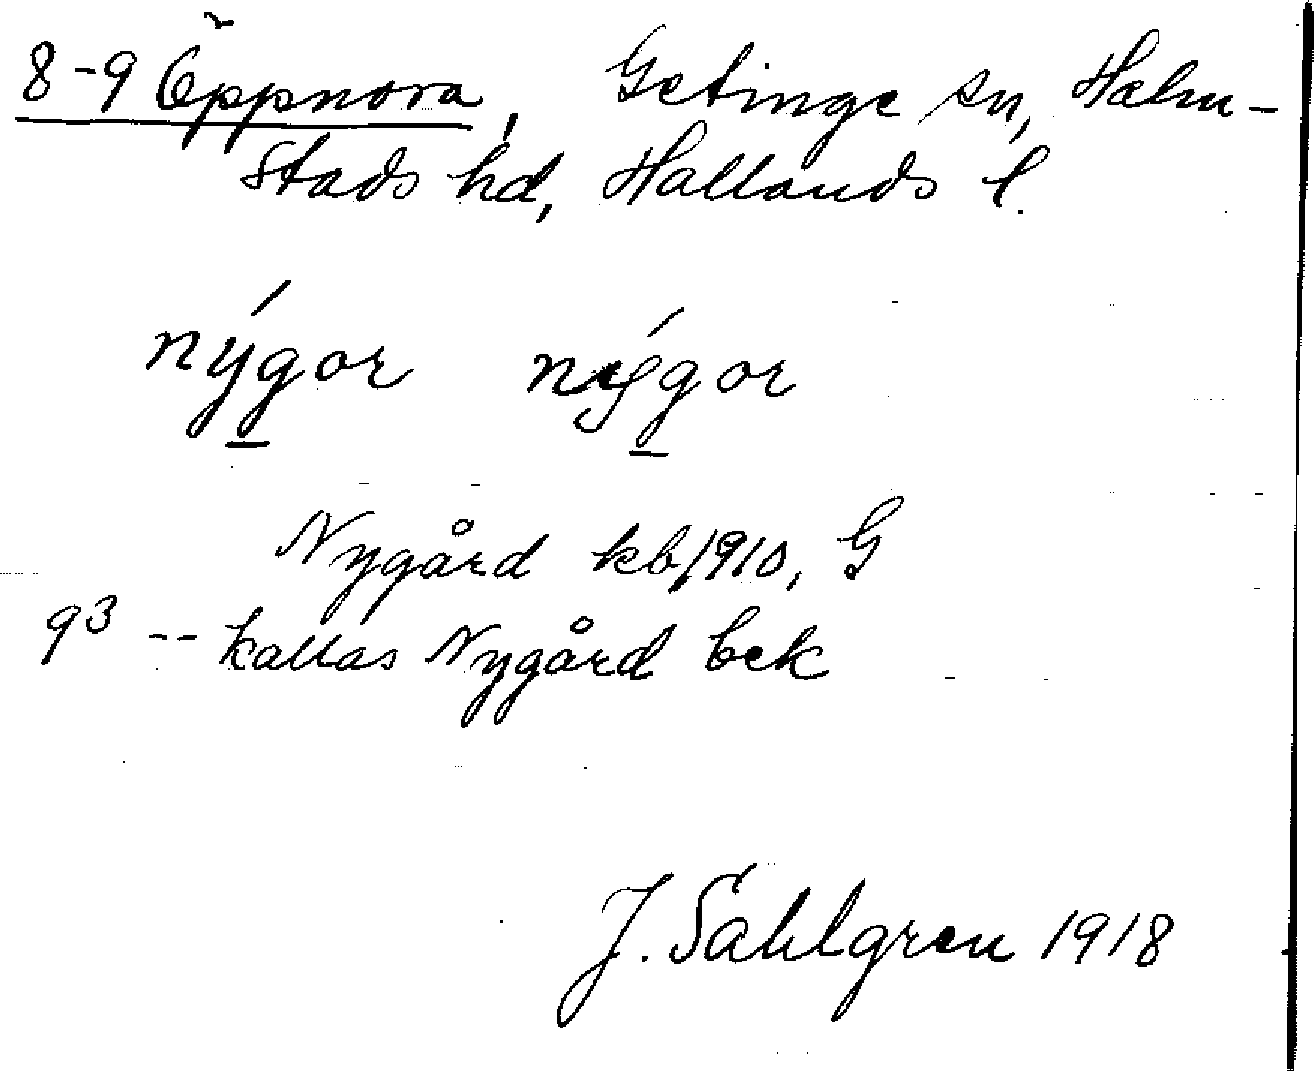 8-9 Öppnora, Getinge sn, Halm-
stads hd, Hallands l.
nýgor nýgor
Nygård kb 1910, G
93 -- kallas Nygård bek
J. Sahlgren 1918